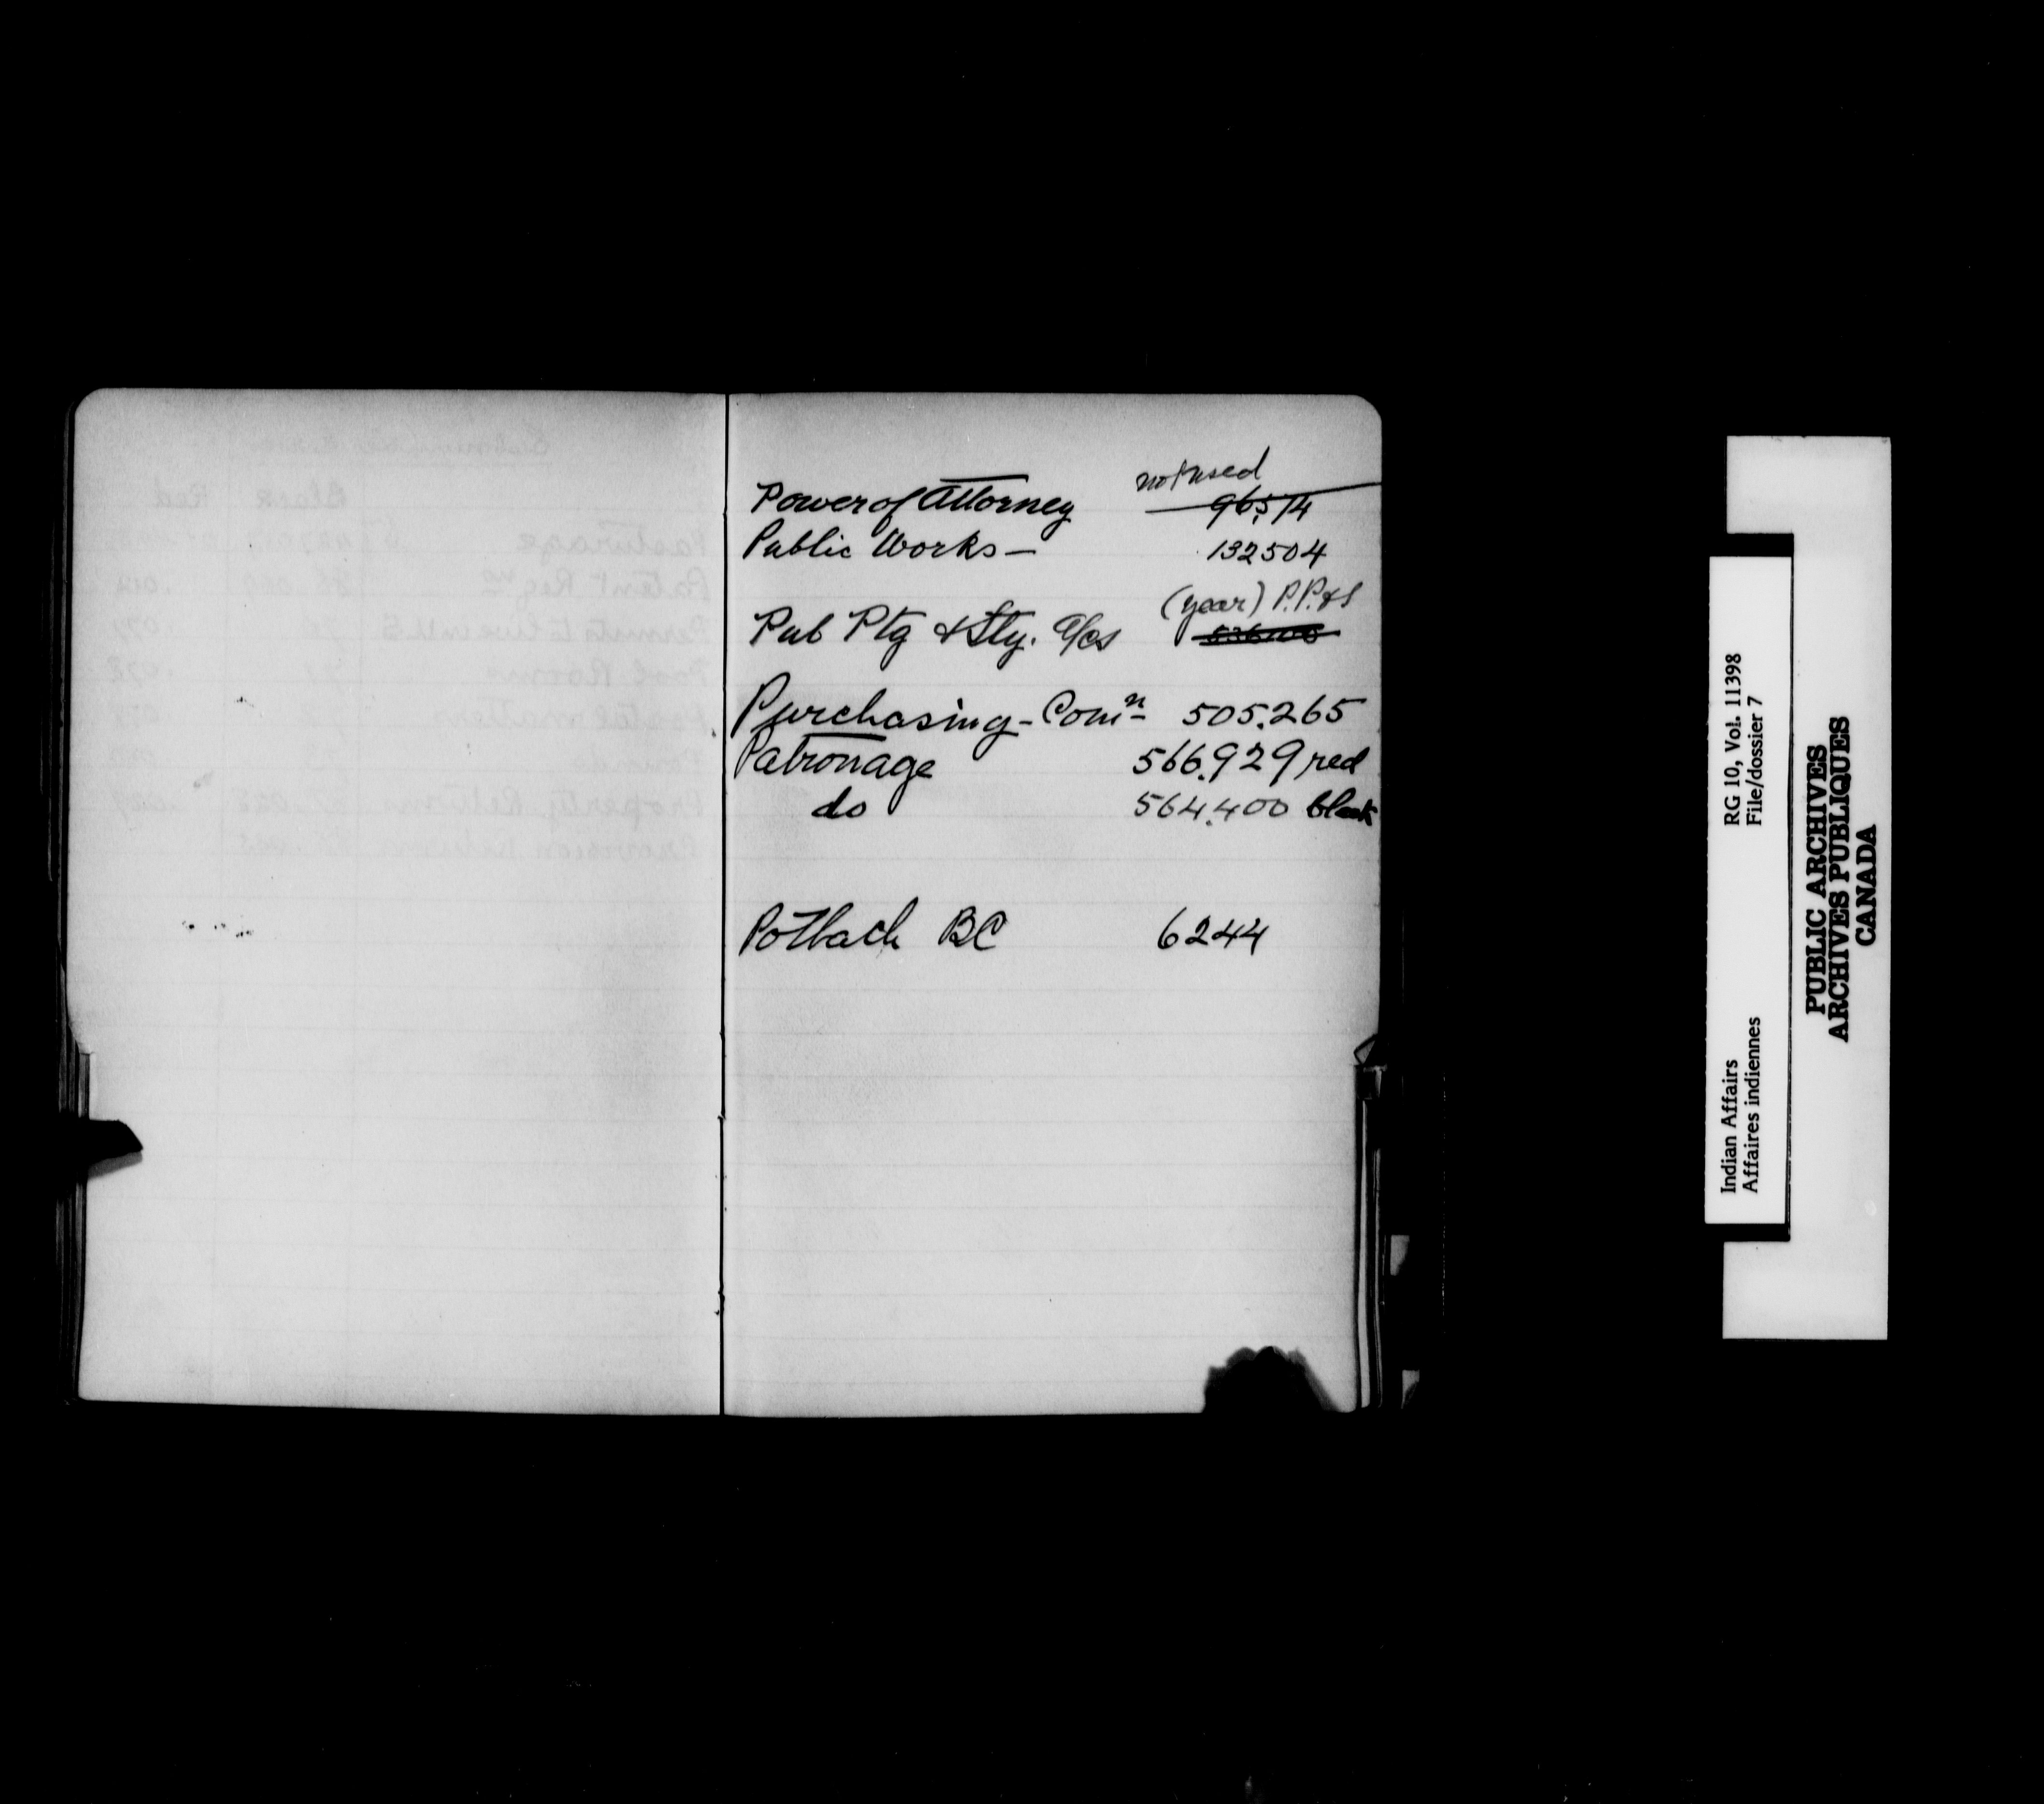 not used
Power of Attorney 96,514
Public Works — 132504
(year) P.P.&S
Pub Ptg & Sty. a/cs
Purchasing - Comn 505,265
Patronage 566,929 red
do 564,400 black
Potlach BC 6244
Indian Affairs RG 10, Vol. 11398
Affaires indiennes File/dossier 7
PUBLIC ARCHIVES
ARCHIVES PUBLIQUES
CANADA